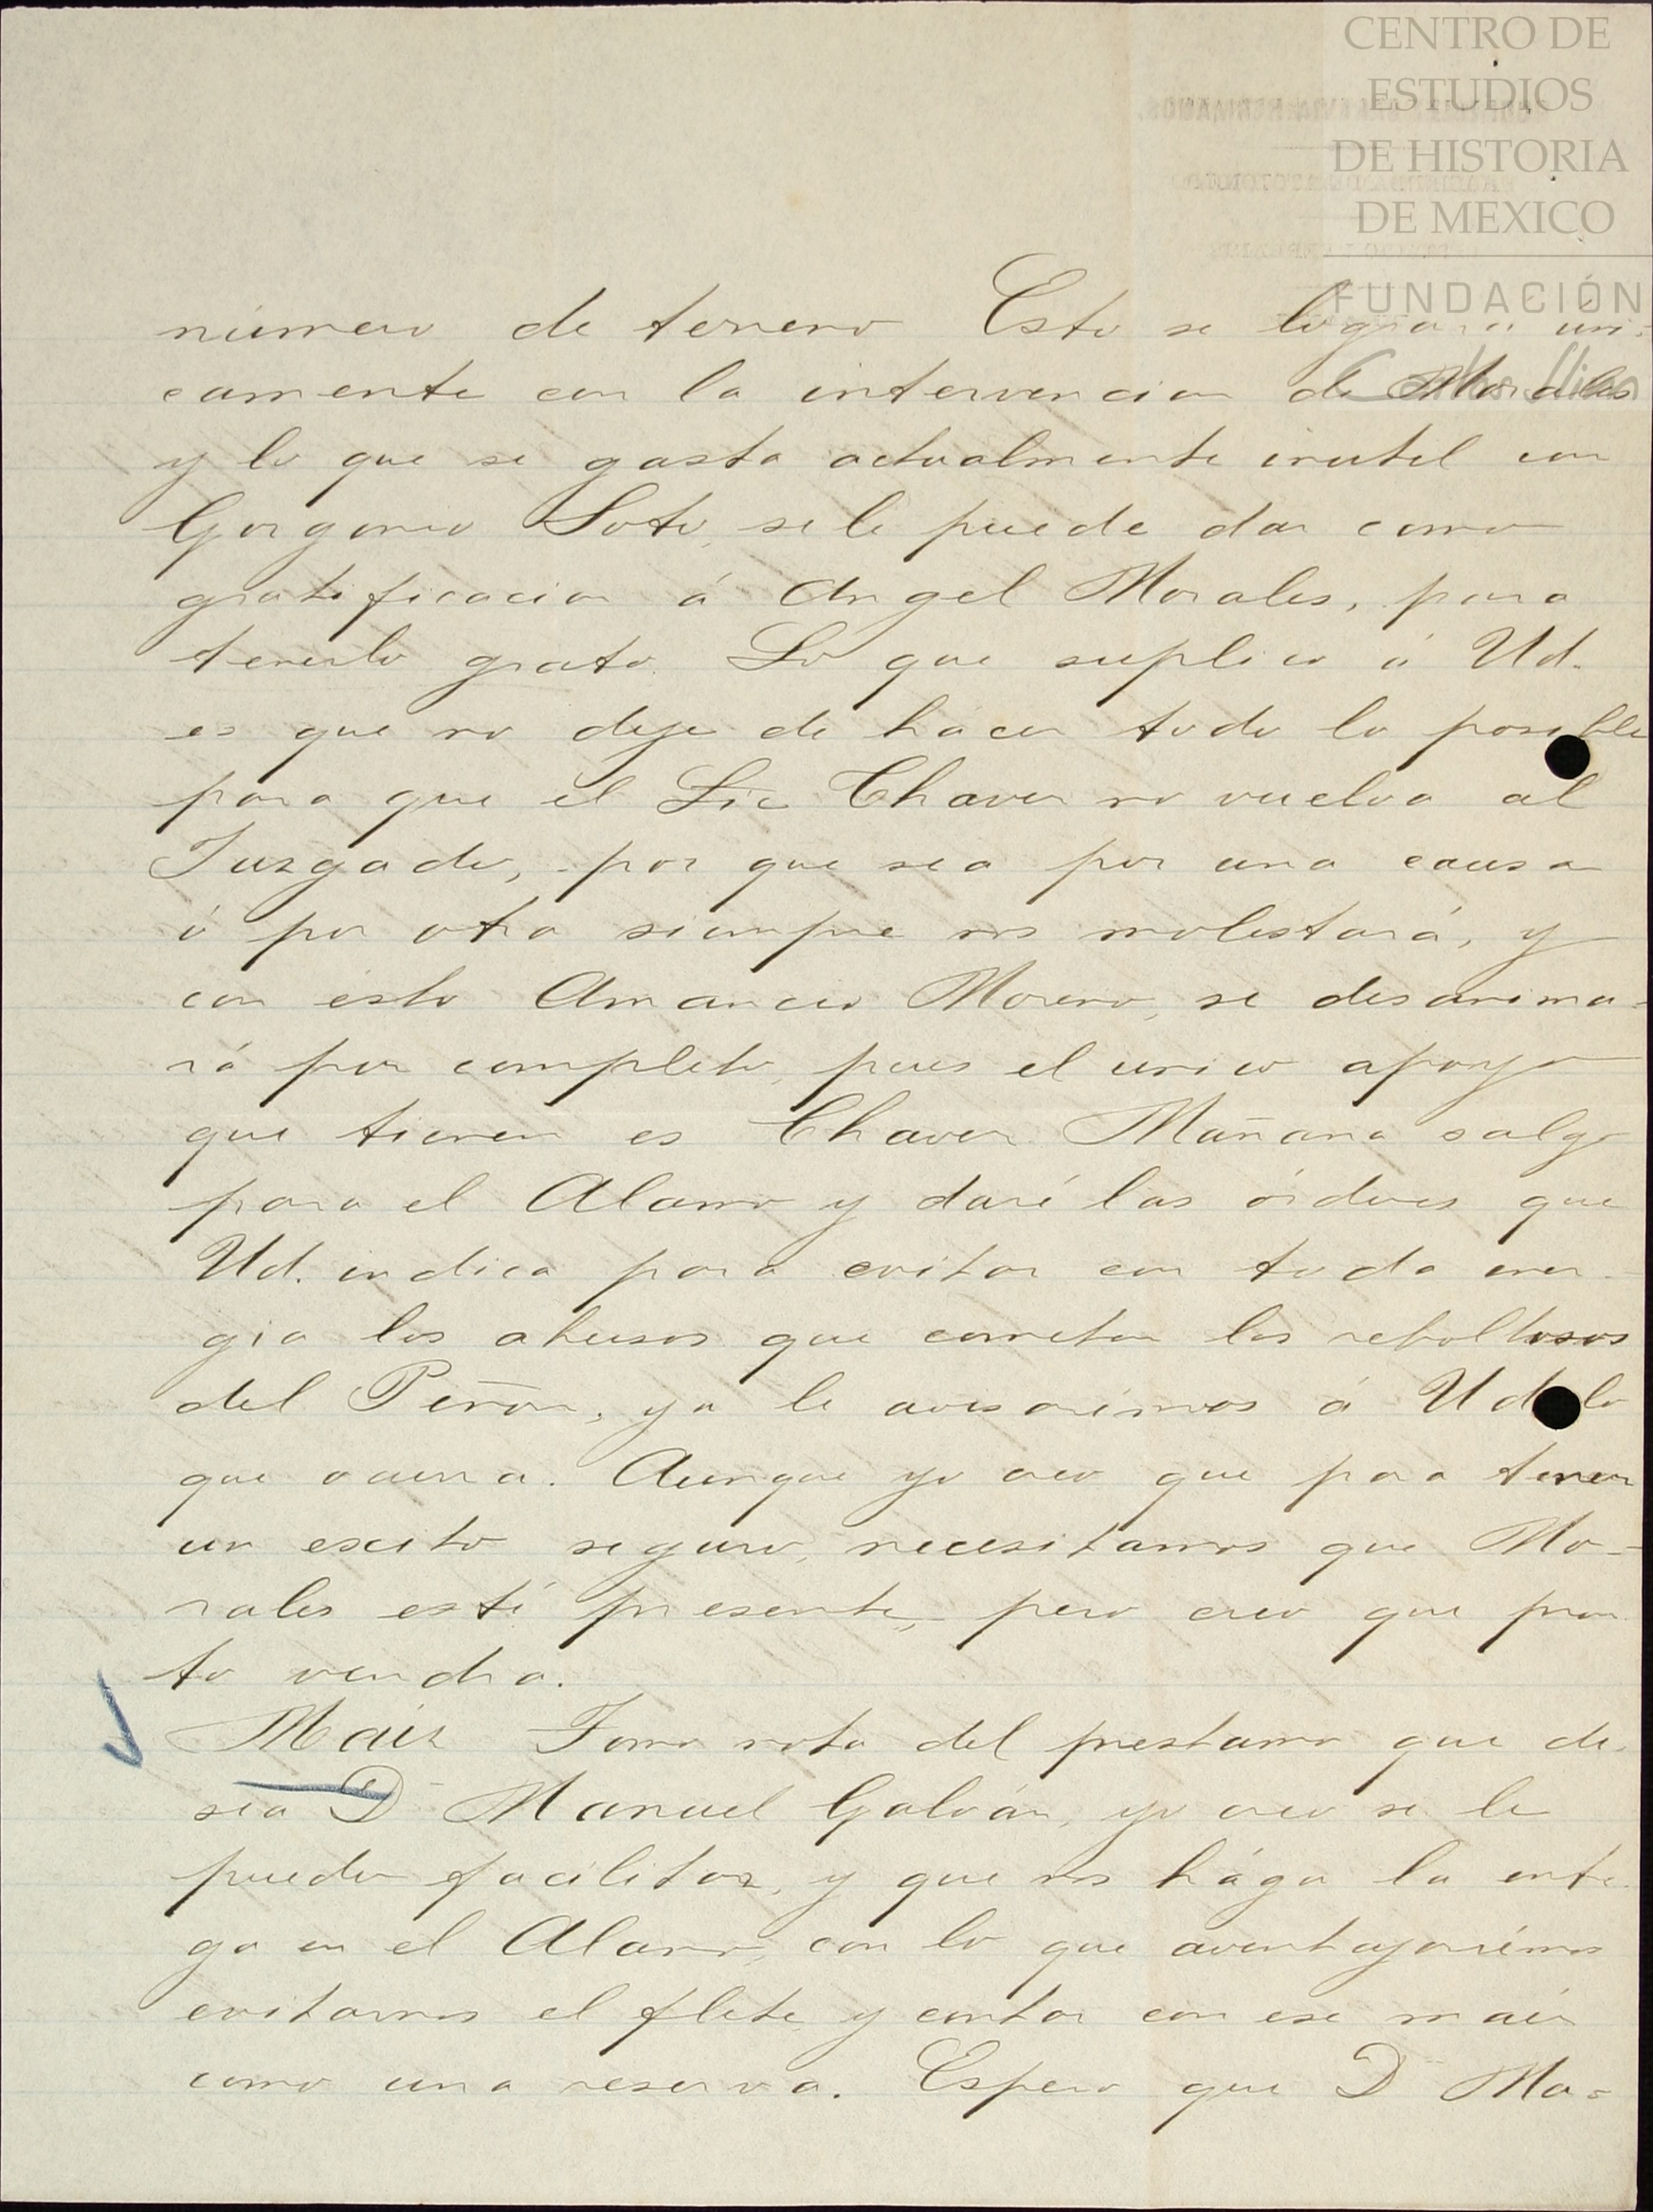 CENTRO DE
ESTUDIOS
DE HISTORIA
DE MEXICO
FUNDACIÓN
número de terreno Esto se logrará uni-
camente con la intervencion de Morales
y lo que se gasta actualmente inutil con
Gorgonio Soto, se le puede dar como
gratificacion á Angel Morales, para
tenerlo grato. Lo que suplico á Ud.
es que no deje de hácer todo lo posible
para que el Lic Chavez no vuelva al
Juzgado, por que sea por una causa
ó por otra siempre nos molestará, y
con ésto Amancio Moreno, se desanima-
rá por completo, pues el unico apoyo
que tienen es Chavez. Mañana salgo
para el Alamo y daré las órdenes que
Ud. indica para evitar con toda ener-
gia los abusos que cometan los reboltosos
del Peñon, ya le avisarémos á Ud lo
que ocurra. Aunque yo creo que para tener
un escito seguro, necesitamos que Mo-
rales esté presente, pero creo que pron
to vendra.
Maiz Tomo nota del prestamo que de-
sea D Manuel Galván, yo creo se le
puede facilitar, y que nos hága la entre
ga en el Alamo, con lo que aventajarémos
evitarnos el flete y contar con ese maiz
como una reserva. Espero que D Ma-